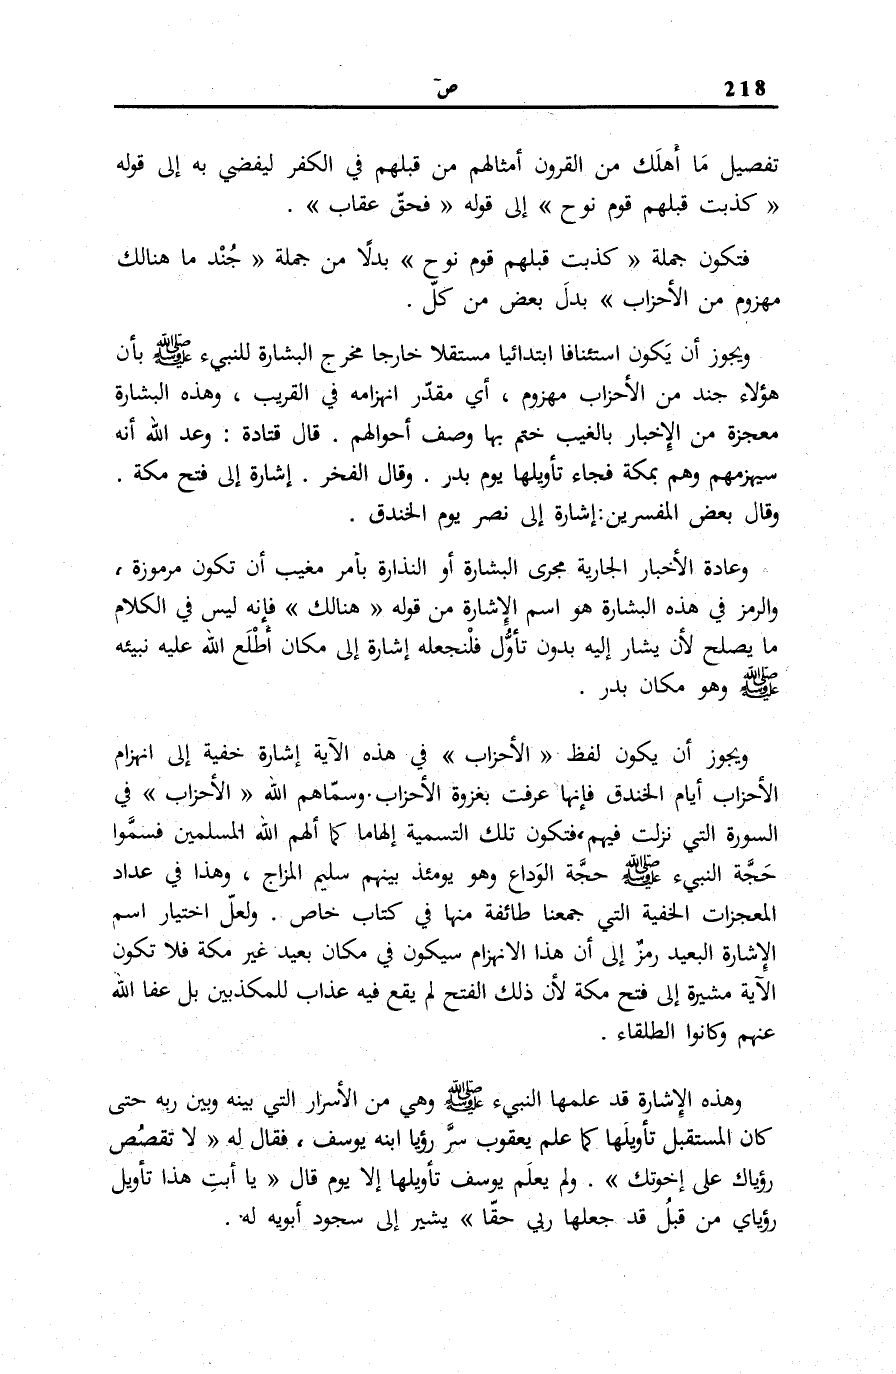 218
صۤ
تفصيل مَا أَهلَك من القرون أمثالهم من قبلهم في الكفر ليفضي به إلى قوله
« كذبت قبلهم قوم نوح » إلى قوله « فحقّ عقاب » .
فتكون جملة « كذبت قبلهم قوم نوح » بدلًا من جملة « جُنْد ما هنالك
مهزوم من الأحزاب » بدلَ بعض من كلّ .
ويجوز أن يَكون استئنافا ابتدائيا مستقلا خارجا مخرج البشارة للنبيء ﷺ بأن
هؤلاء جند من الأحزاب مهزوم ، أي مقدّر انهزامه في القريب ، وهذه البشارة
معجزة من الإخبار بالغيب ختم بها وصف أحوالهم . قال قتادة : وعد الله أنه
سيهزمهم وهم بمكة فجاء تأويلها يوم بدر . وقال الفخر . إشارة إلى فتح مكة .
وقال بعض المفسرين:إشارة إلى نصر يوم الخندق .
وعادة الأخبار الجارية مجرى البشارة أو النذارة بأمر مغيب أن تكون مرموزة ،
والرمز في هذه البشارة هو اسم الإشارة من قوله « هنالك » فإنه ليس في الكلام
ما يصلح لأن يشار إليه بدون تأوُّل فلْنجعله إشارة إلى مكان أَطْلَع الله عليه نبيئه
ﷺ وهو مكان بدر .
ويجوز أن يكون لفظ « الأحزاب » في هذه الآية إشارة خفية إلى انهزام
الأحزاب أيام الخندق فإنها عرفت بغزوة الأحزاب.وسمّاهم الله « الأحزاب » في
السورة التي نزلت فيهم،فتكون تلك التسمية إلهاما كما ألهم الله المسلمين فسمَّوا
حَجَّة النبيء ﷺ حجَّة الوَداع وهو يومئذ بينهم سليم المزاج ، وهذا في عداد
المعجزات الخفية التي جمعنا طائفة منها في كتاب خاص . ولعلّ اختيار اسم
الإشارة البعيد رمزٌ إلى أن هذا الانهزام سيكون في مكان بعيد غير مكة فلا تكون
الآية مشيرة إلى فتح مكة لأن ذلك الفتح لم يقع فيه عذاب للمكذبين بل عفا الله
عنهم وكانوا الطلقاء .
وهذه الإشارة قد علمها النبيء ﷺ وهي من الأسرار التي بينه وبين ربه حتى
كان المستقبل تأويلَها كما علم يعقوب سرَّ رؤيا ابنه يوسف ، فقال له « لا تقصُص
رؤياك على إخوتك » . ولم يعلَم يوسف تأويلها إلا يوم قال « يا أبتِ هذا تأويل
رؤياي من قبلُ قد جعلها ربي حقّا » يشير إلى سجود أبويه له .